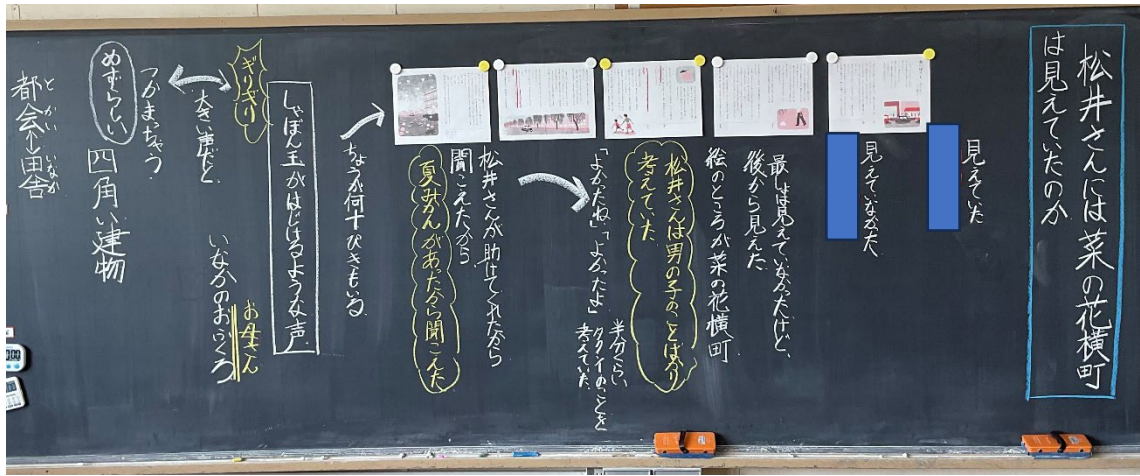 松井さんには菜の花横町
は見えていたのか
見えていた
見えていなかった
最しょは見えていなかったけど、
後から見えた
絵のところが菜の花横町
松井さんは男の子のことばかり
考えていた
半分くらい
タクシーのことを
考えていた。
「よかったね」「よかったよ」
松井さんが助けてくれたから
聞こえたから
夏みかんがあったから聞こえた
ちょうが何十ぴきもいる
しゃぼん玉がはじけるような声
ぎりぎり
大きい声だと
つかまっちゃう
お母さん
いなかのおふくろ
めずらしい
四角い建物
とかい いなか
都会↔田舎